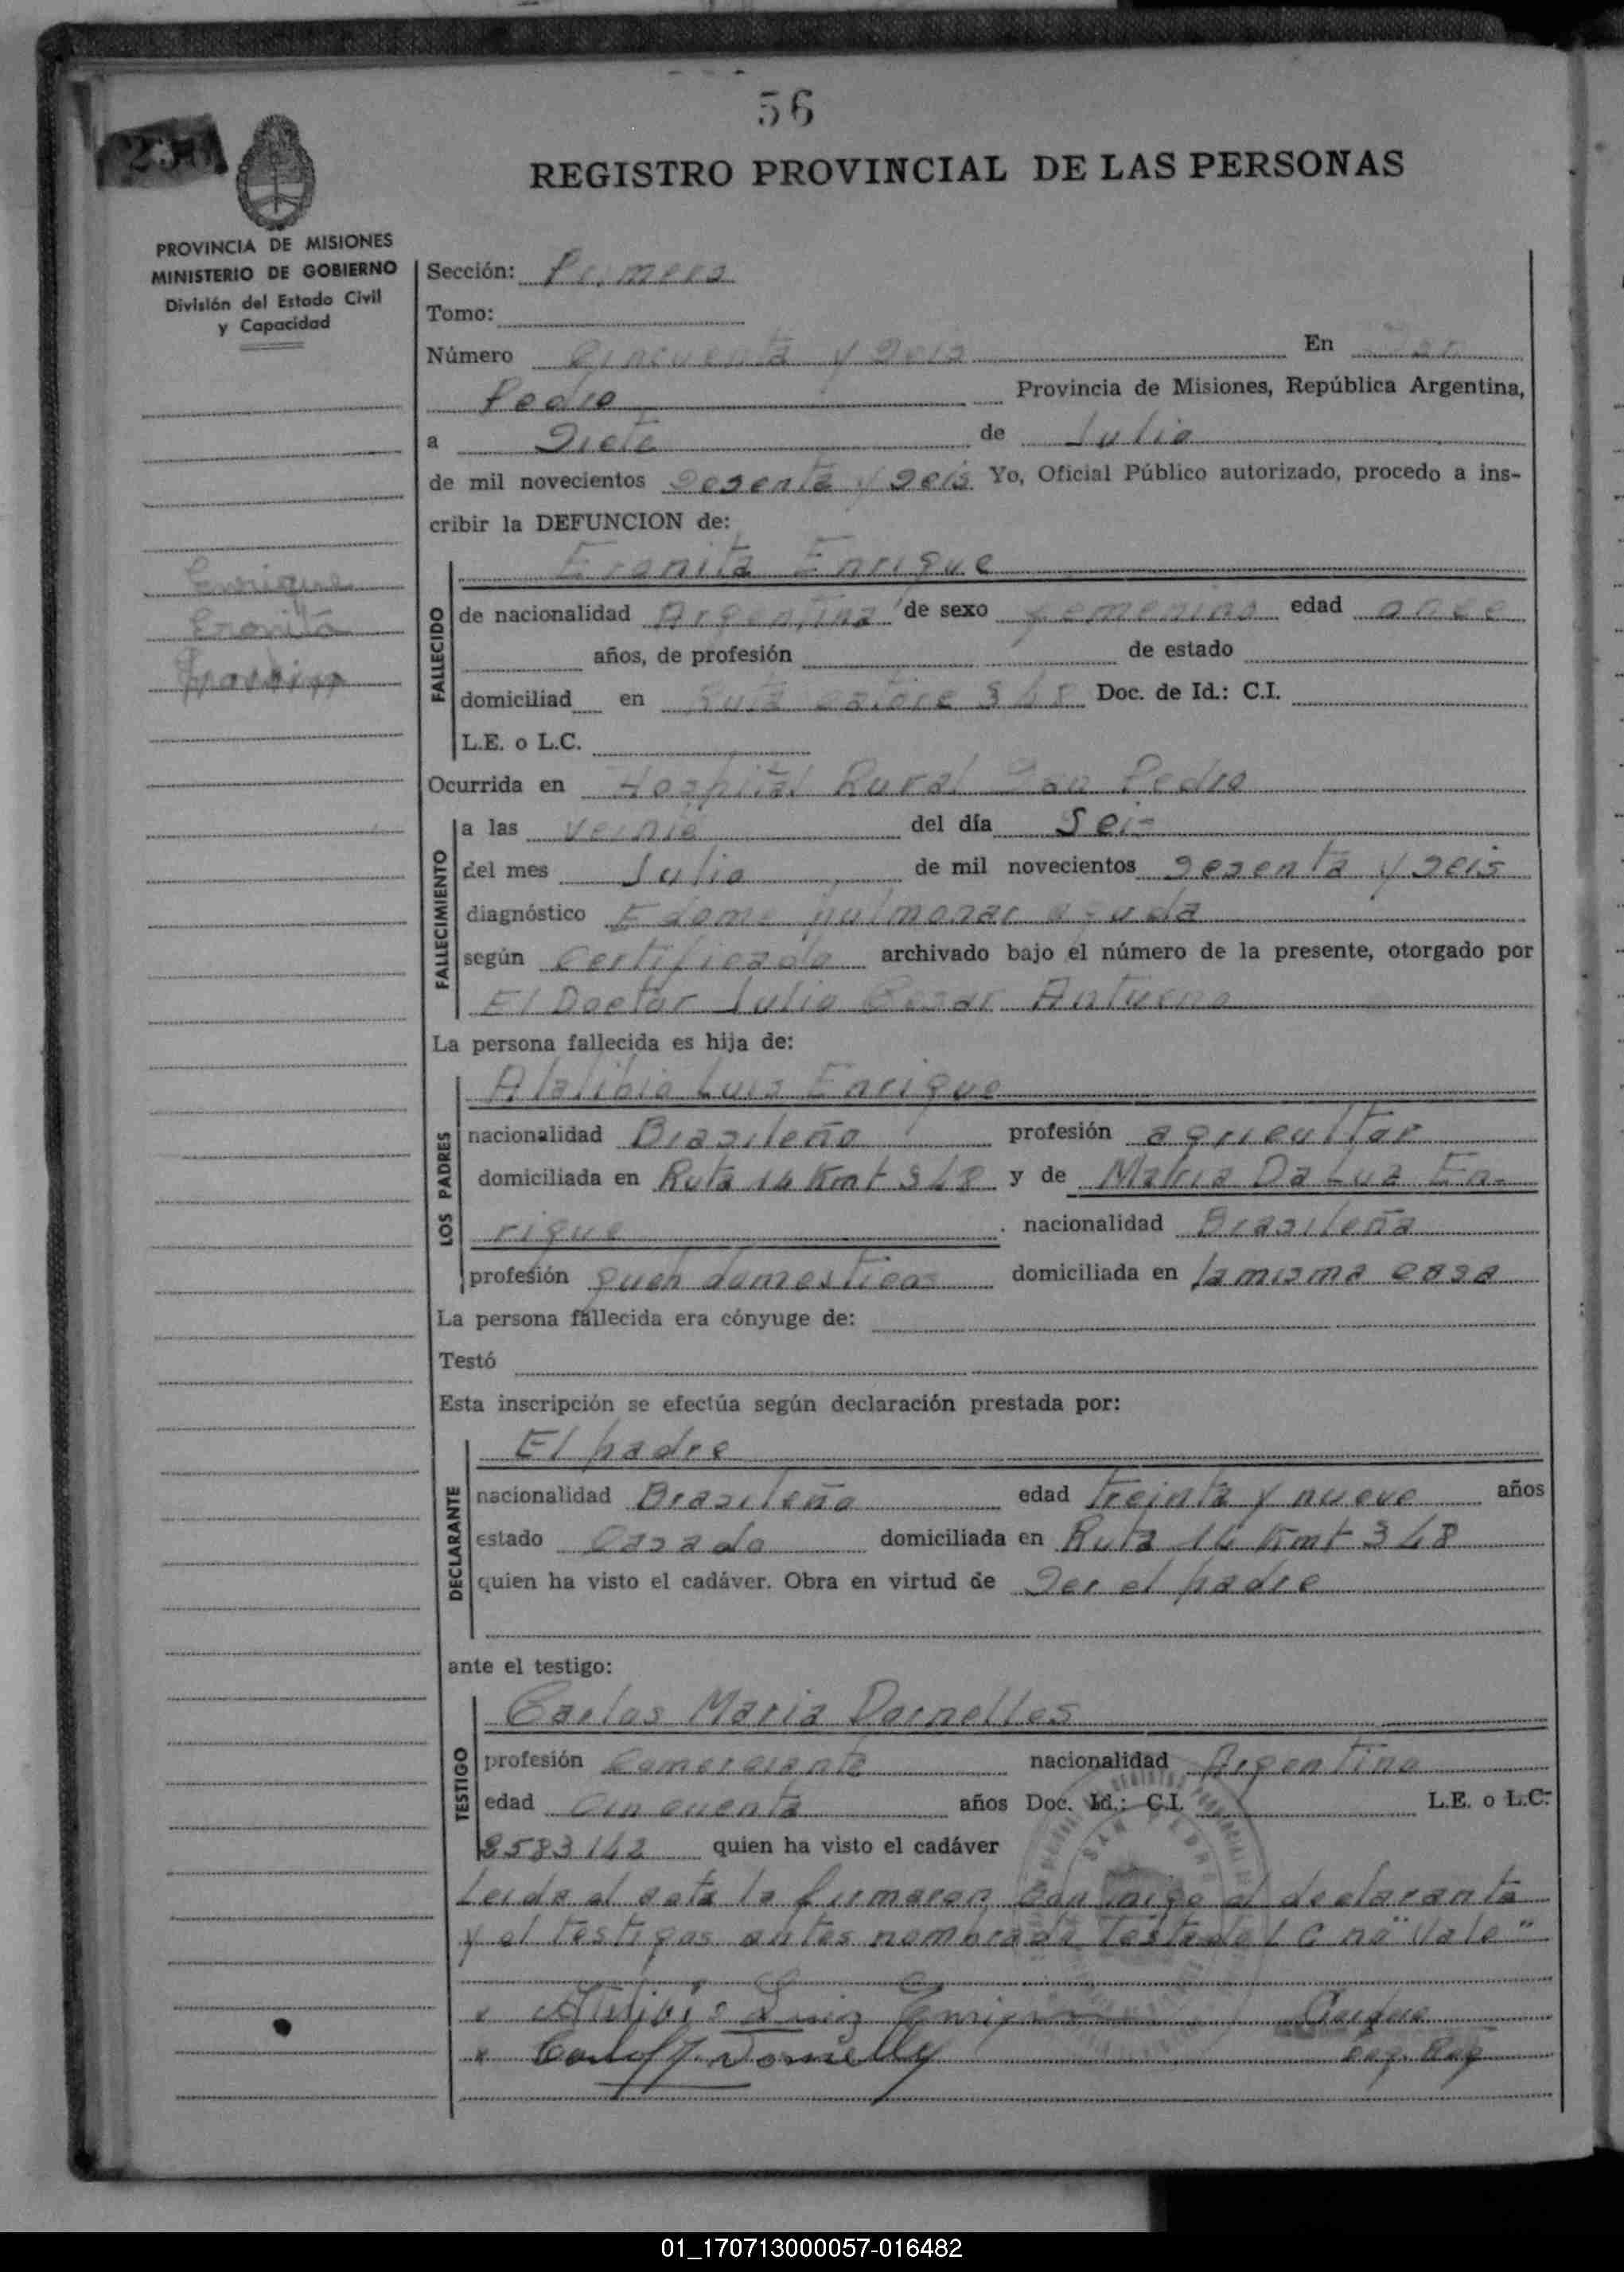 56
REGISTRO PROVINCIAL DE LAS PERSONAS
PROVINCIA DE MISIONES
MINISTERIO DE GOBIERNO
División del Estado Civil
y Capacidad
Sección: Primera
Tomo:
Número Cincuenta y Seis En San
Pedro Provincia de Misiones, República Argentina,
a Siete de Julio
de mil novecientos Sesenta y Seis Yo, Oficial Público autorizado, procedo a ins-
cribir la DEFUNCION de:
Enrique
Eronita
FALLECIDO
Eronita Enrique
de nacionalidad Argentina de sexo femenino edad once
años, de profesión de estado
domiciliad en Ruta catorce 348 Doc. de Id.: C.I.
L.E. o L.C.
Ocurrida en Hospital Rural San Pedro
FALLECIMIENTO
a las Veinte del día Seis
del mes Julio de mil novecientos Sesenta y Seis
diagnóstico Edema pulmonar aguda
según Certificado archivado bajo el número de la presente, otorgado por
El Doctor Julio Cesar
La persona fallecida es hija de:
LOS PADRES
Luis Enrique
nacionalidad Brasileño profesión agricultor
domiciliada en Ruta 14 Kmt 348 y de Maria Da Luz En-
rique nacionalidad Brasileña
profesión queh domesticos domiciliada en la misma casa
La persona fallecida era cónyuge de:
Testó
Esta inscripción se efectúa según declaración prestada por:
DECLARANTE
El padre
nacionalidad Brasileño edad treinta y nueve años
estado Casado domiciliada en Ruta 14 Kmt 348
quien ha visto el cadáver. Obra en virtud de Ser el padre
ante el testigo:
TESTIGO
Carlos Maria Dornelles
profesión Comerciante nacionalidad Argentino
edad Cincuenta años Doc. Id.: C.I. L.E. o L.C.
quien ha visto el cadáver
Leida el acta la firmaron conmigo el declarante
y el testigos antes nombrado Testado L C no "Vale"
01_170713000057-016482